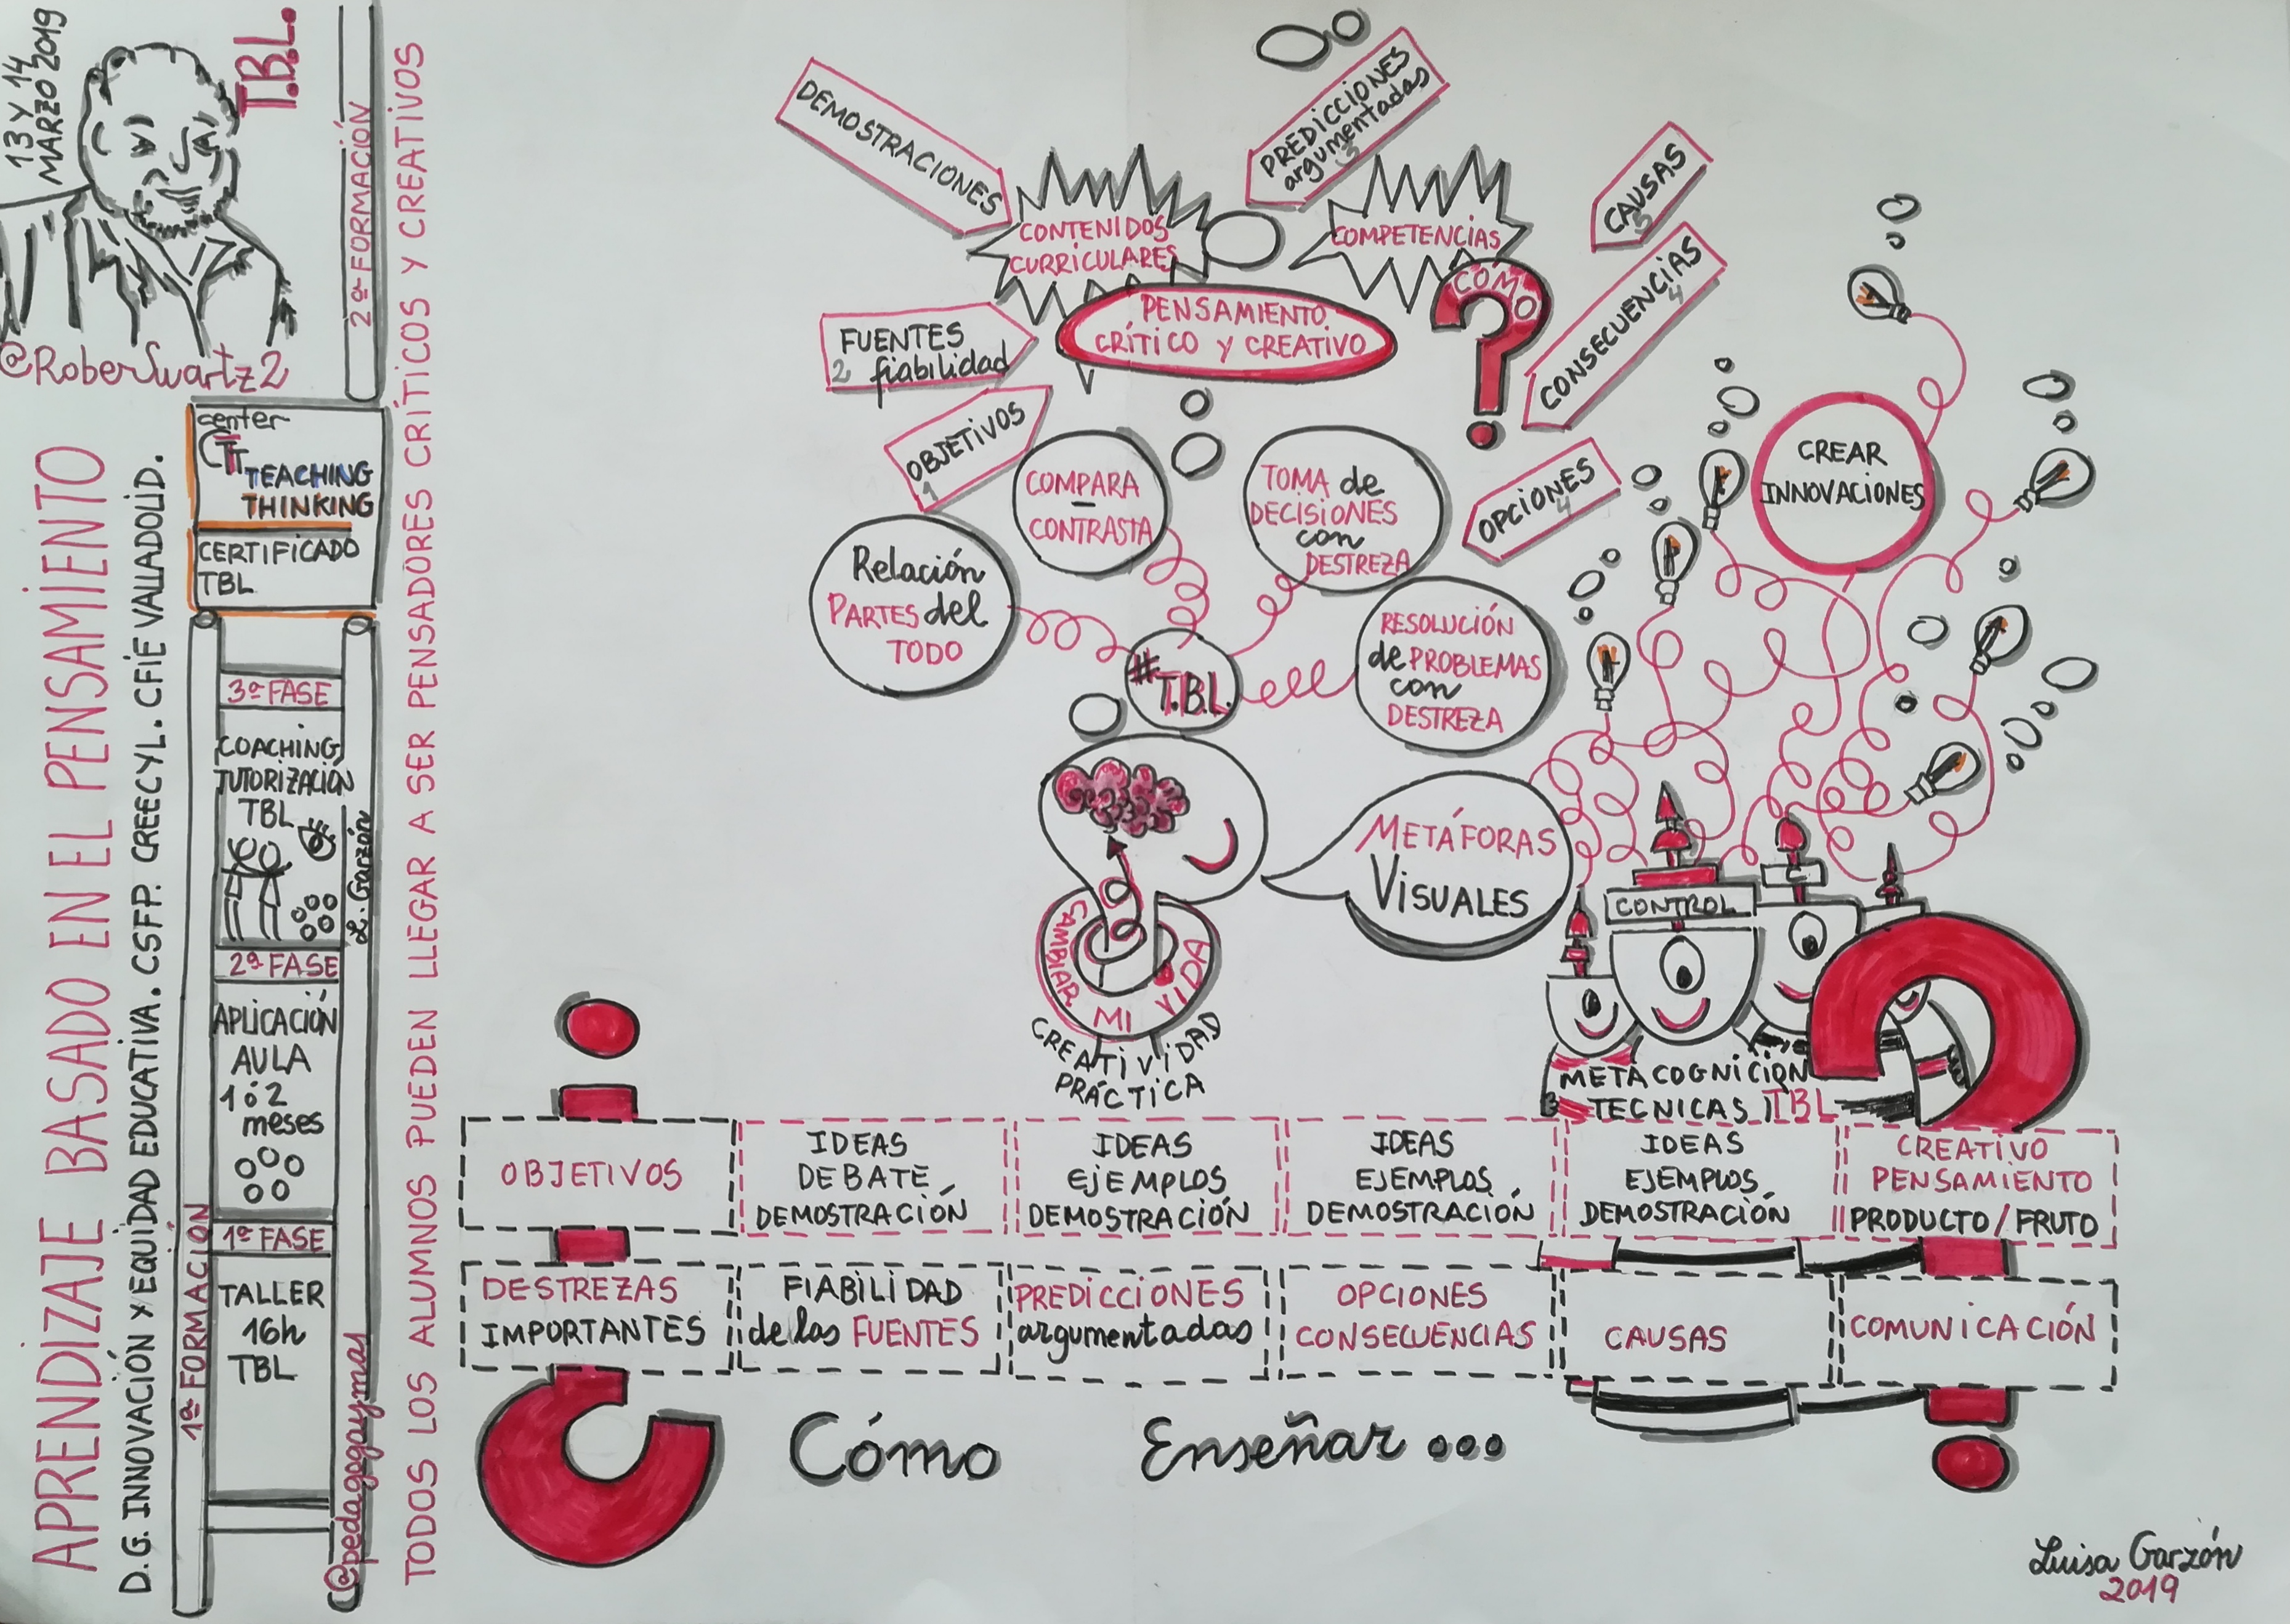 13 Y 14
MARZO 2019
T.B.L.
@RoberSwartz2
APRENDIZAJE BASADO EN EL PENSAMIENTO
D.G. INNOVACIÓN Y EQUIDAD EDUCATIVA. CSFP. CREECYL. CFIE VALLADOLID.
center
CTT
TEACHING
THINKING
CERTIFICADO
TBL
2ª FORMACIÓN
3ª FASE
COACHING
TUTORIZACIÓN
TBL
L. Garzón
2ª FASE
APLICACIÓN
AULA
1 ó 2
meses
1ª FASE
TALLER
16h
TBL
1ª FORMACIÓN
@pedagogaymas
TODOS LOS ALUMNOS PUEDEN LLEGAR A SER PENSADORES CRÍTICOS Y CREATIVOS
DEMOSTRACIONES
PREDICCIONES
argumentadas
3
CAUSAS
5
CONTENIDOS
CURRICULARES
COMPETENCIAS
CÓMO
CONSECUENCIAS
4
PENSAMIENTO
CRÍTICO Y CREATIVO
FUENTES
2 fiabilidad
OBJETIVOS
1
OPCIONES
4
COMPARA
-
CONTRASTA
TOMA de
DECISIONES
con
DESTREZA
Relación
PARTES del
TODO
#T.B.L.
RESOLUCIÓN
de PROBLEMAS
con
DESTREZA
CREAR
INNOVACIONES
METÁFORAS
VISUALES
CAMBIAR MI VIDA
CREATIVIDAD
PRÁCTICA
CONTROL
METACOGNICIÓN
TECNICAS TBL
OBJETIVOS
IDEAS
DEBATE
DEMOSTRACIÓN
IDEAS
EJEMPLOS
DEMOSTRACIÓN
IDEAS
EJEMPLOS
DEMOSTRACIÓN
IDEAS
EJEMPLOS
DEMOSTRACIÓN
CREATIVO
PENSAMIENTO
PRODUCTO/FRUTO
DESTREZAS
IMPORTANTES
FIABILIDAD
de las FUENTES
PREDICCIONES
argumentadas
OPCIONES
CONSECUENCIAS
CAUSAS
COMUNICACIÓN
Cómo Enseñar...
Luisa Garzón
2019